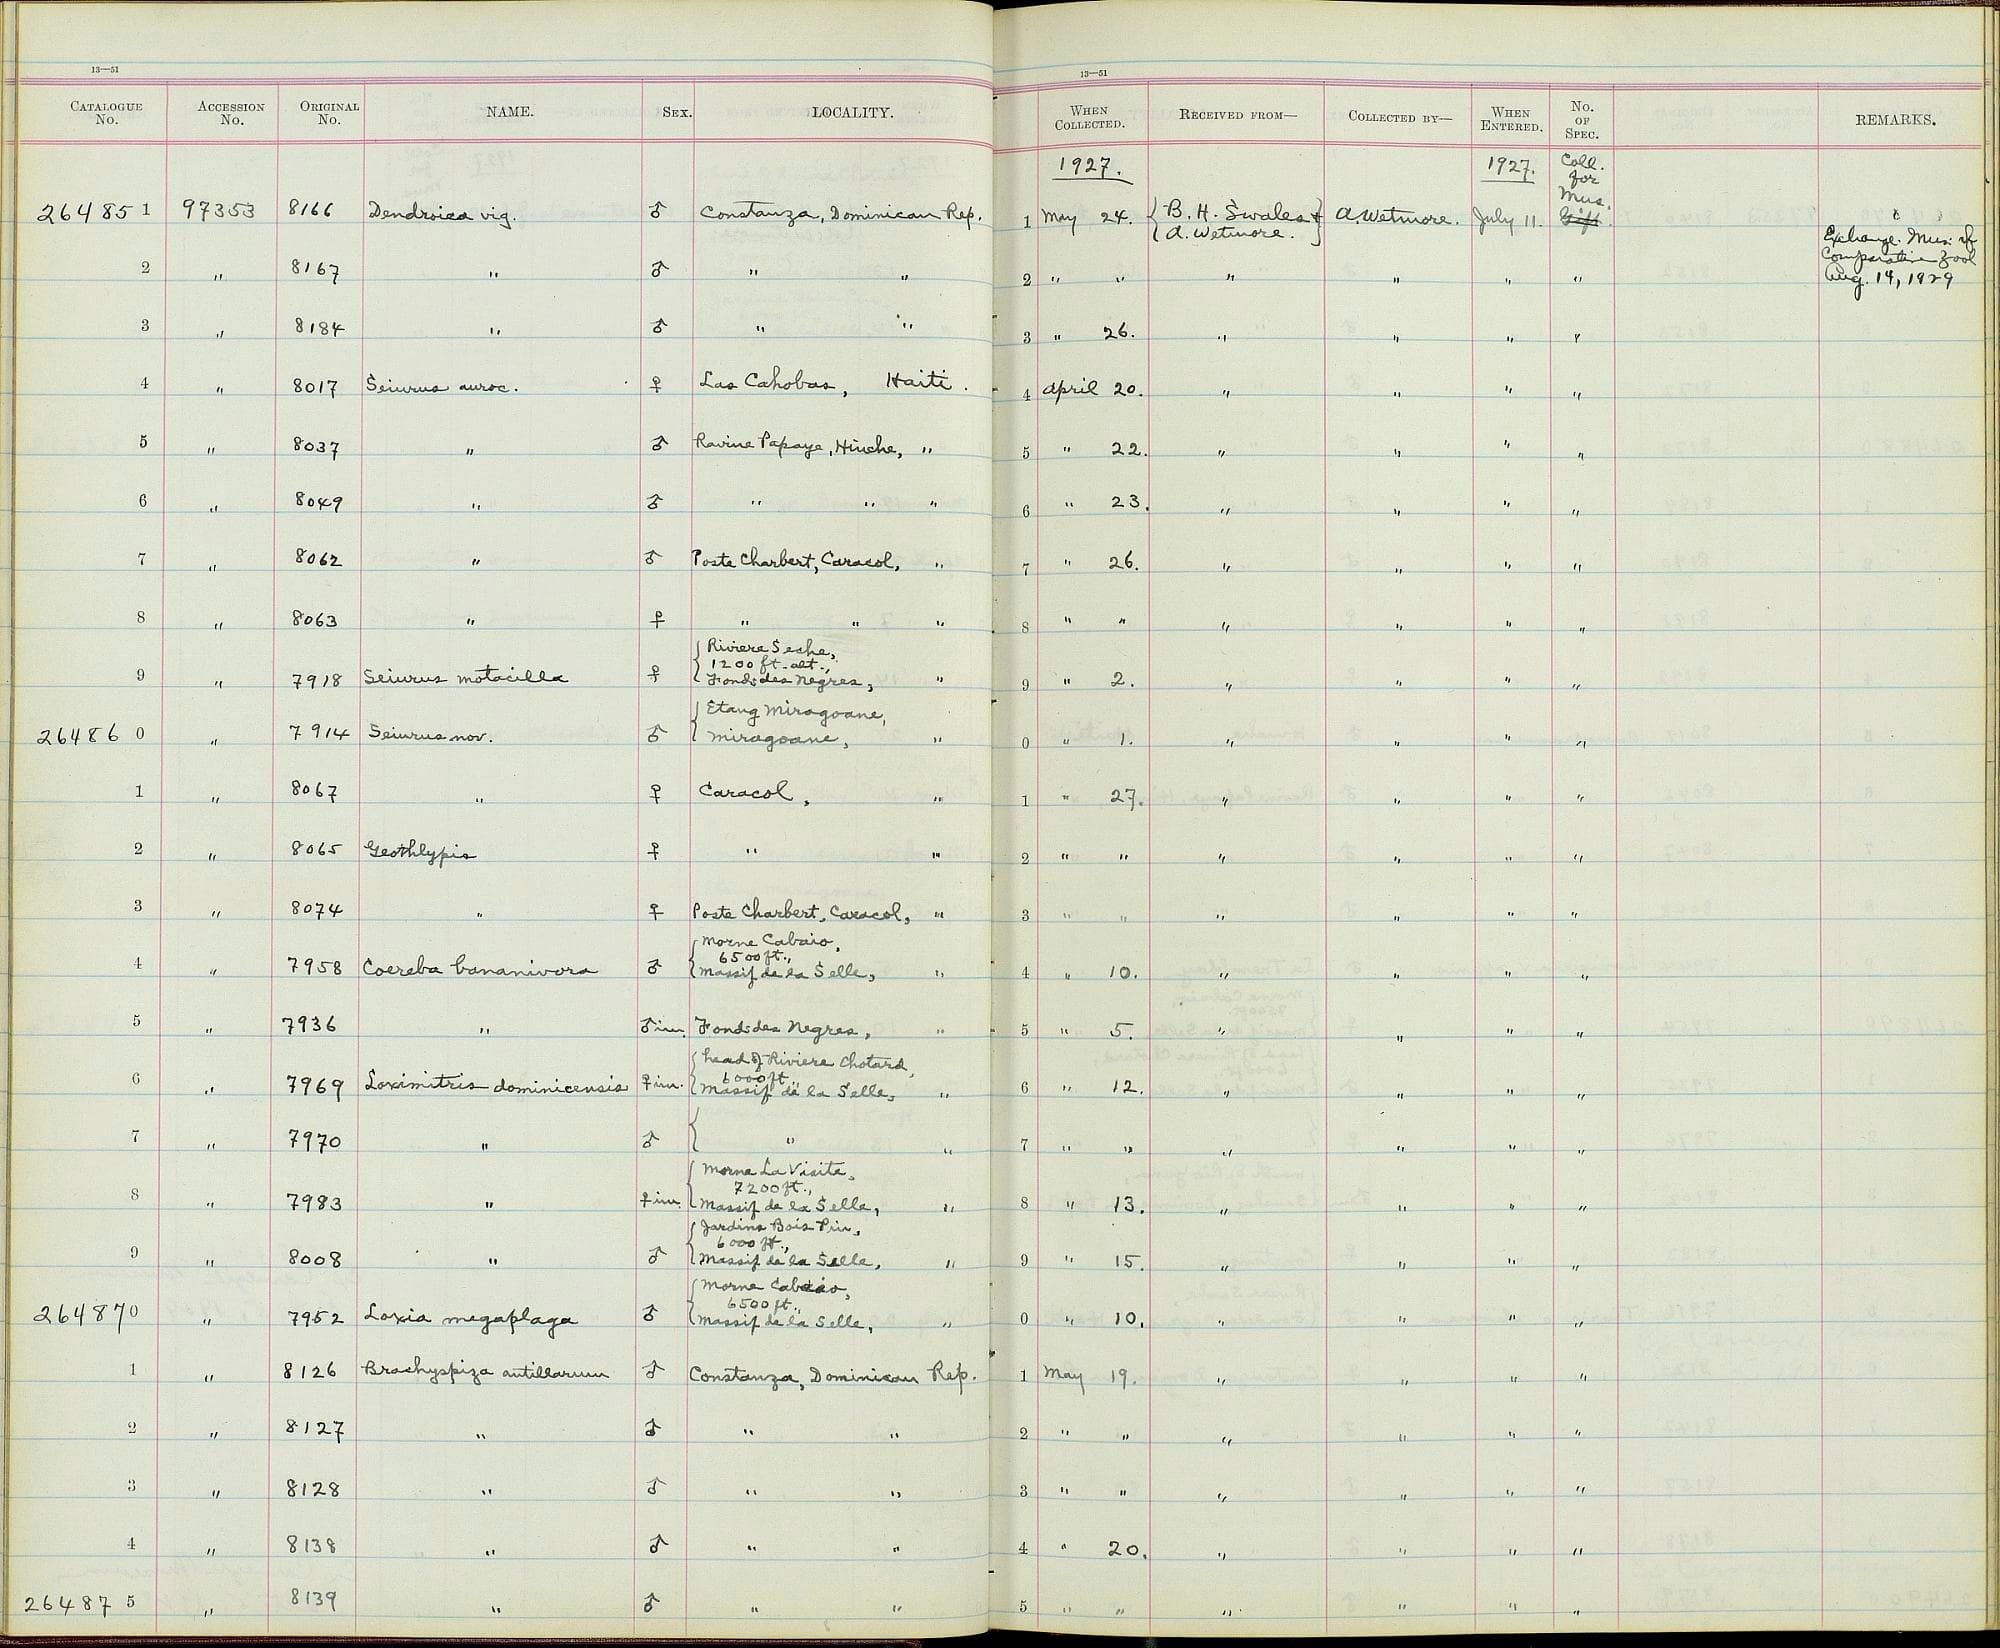 13—51
13—51
CATALOGUE No. ACCESSION No. ORIGINAL No. NAME. SEX. LOCALITY. WHEN COLLECTED. RECEIVED FROM— COLLECTED BY— WHEN ENTERED. No. OF SPEC. REMARKS.
1927. 1927. Coll. for Mus.
264851 97353 8166 Dendroica vig. ♂ Constanza, Dominican Rep. 1 May 24. { B. H. Swales & A. Wetmore. } A. Wetmore. July 11. Gift.
2 " 8167 " ♂ " " 2 " " " " " " Exchange. Mus. of Comparative Zool Aug. 14, 1929
3 " 8184 " ♂ " " 3 " 26. " " " "
4 " 8017 Seiurus auroc. ♀ Las Cahobas, Haiti. 4 April 20. " " " "
5 " 8037 " ♂ Ravine Papaye, Hinche, " 5 " 22. " " " "
6 " 8049 " ♂ " " " 6 " 23. " " " "
7 " 8062 " ♂ Poste Charbert, Caracol, " 7 " 26. " " " "
8 " 8063 " ♀ " " " 8 " " " " " "
9 " 7918 Seiurus motacilla ♀ { Riviere Seche, 1200 ft. alt., Fonds des Negres, " 9 " 2. " " " "
264860 " 7914 Seiurus nov. ♂ { Etang Miragoane, Miragoane, " 0 " 1. " " " "
1 " 8067 " ♀ Caracol, " 1 " 27. " " " "
2 " 8065 Geothlypis ♀ " " 2 " " " " " "
3 " 8074 " ♀ Poste Charbert, Caracol, " 3 " " " " " "
4 " 7958 Coereba bananivora ♂ { Morne Cabaio, 6500 ft., Massif de la Selle, " 4 " 10. " " " "
5 " 7936 " ♂ im. Fonds des Negres, " 5 " 5. " " " "
6 " 7969 Loximitris dominicensis ♀ im. { head of Riviere Chotard, 6000 ft., Massif de la Selle, " 6 " 12. " " " "
7 " 7970 " ♂ { " " 7 " " " " " "
8 " 7983 " ♀ im. { Morne La Visite, 7200 ft., Massif de la Selle, " 8 " 13. " " " "
9 " 8008 " ♂ { Jardins Bois Pin, 6000 ft., Massif de la Selle, " 9 " 15. " " " "
264870 " 7952 Loxia megaplaga ♂ { Morne Cabaio, 6500 ft., Massif de la Selle, " 0 " 10. " " " "
1 " 8126 Brachyspiza antillarum ♂ Constanza, Dominican Rep. 1 May 19. " " " "
2 " 8127 " ♂ " " 2 " " " " " "
3 " 8128 " ♂ " " 3 " " " " " "
4 " 8138 " ♂ " " 4 " 20. " " " "
264875 " 8139 " ♂ " " 5 " " " " " "